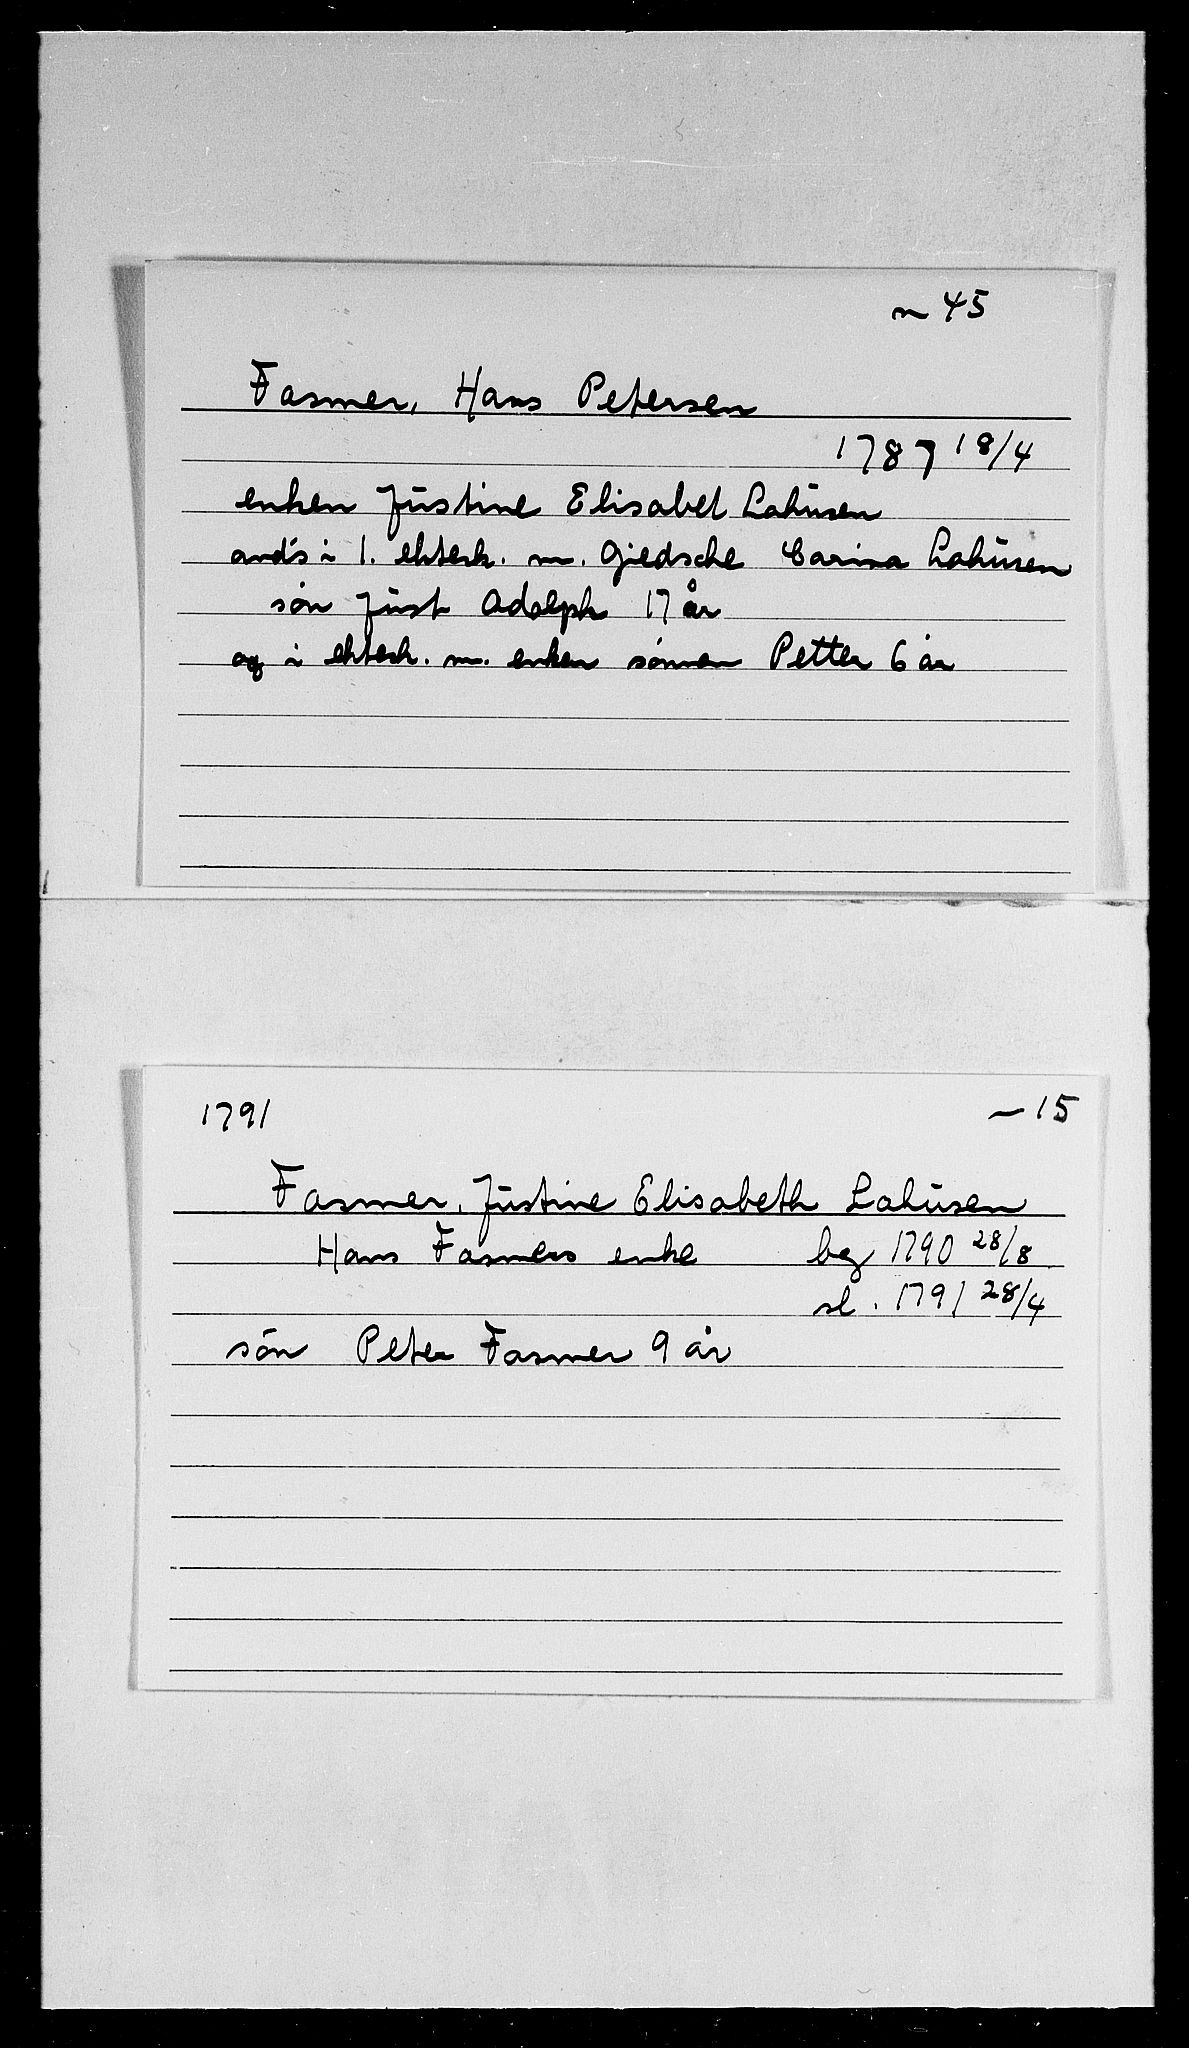 n 45
Fasmer, Hans Petersen
1787 18/4
enken Justine Elisabet Lahusen
and's i 1. ektesk. m. Giedsche Carina Lahusen
søn Just Adolph 17 år
og i ektesk. m. enken sønnen Petter 6 år
1791
15
Fasmer, Justine Elisabeth Lahusen
Hans Fasmers enke beg 1790 28/8
sl. 1791 28/4
søn Peter Fasmer 9 år